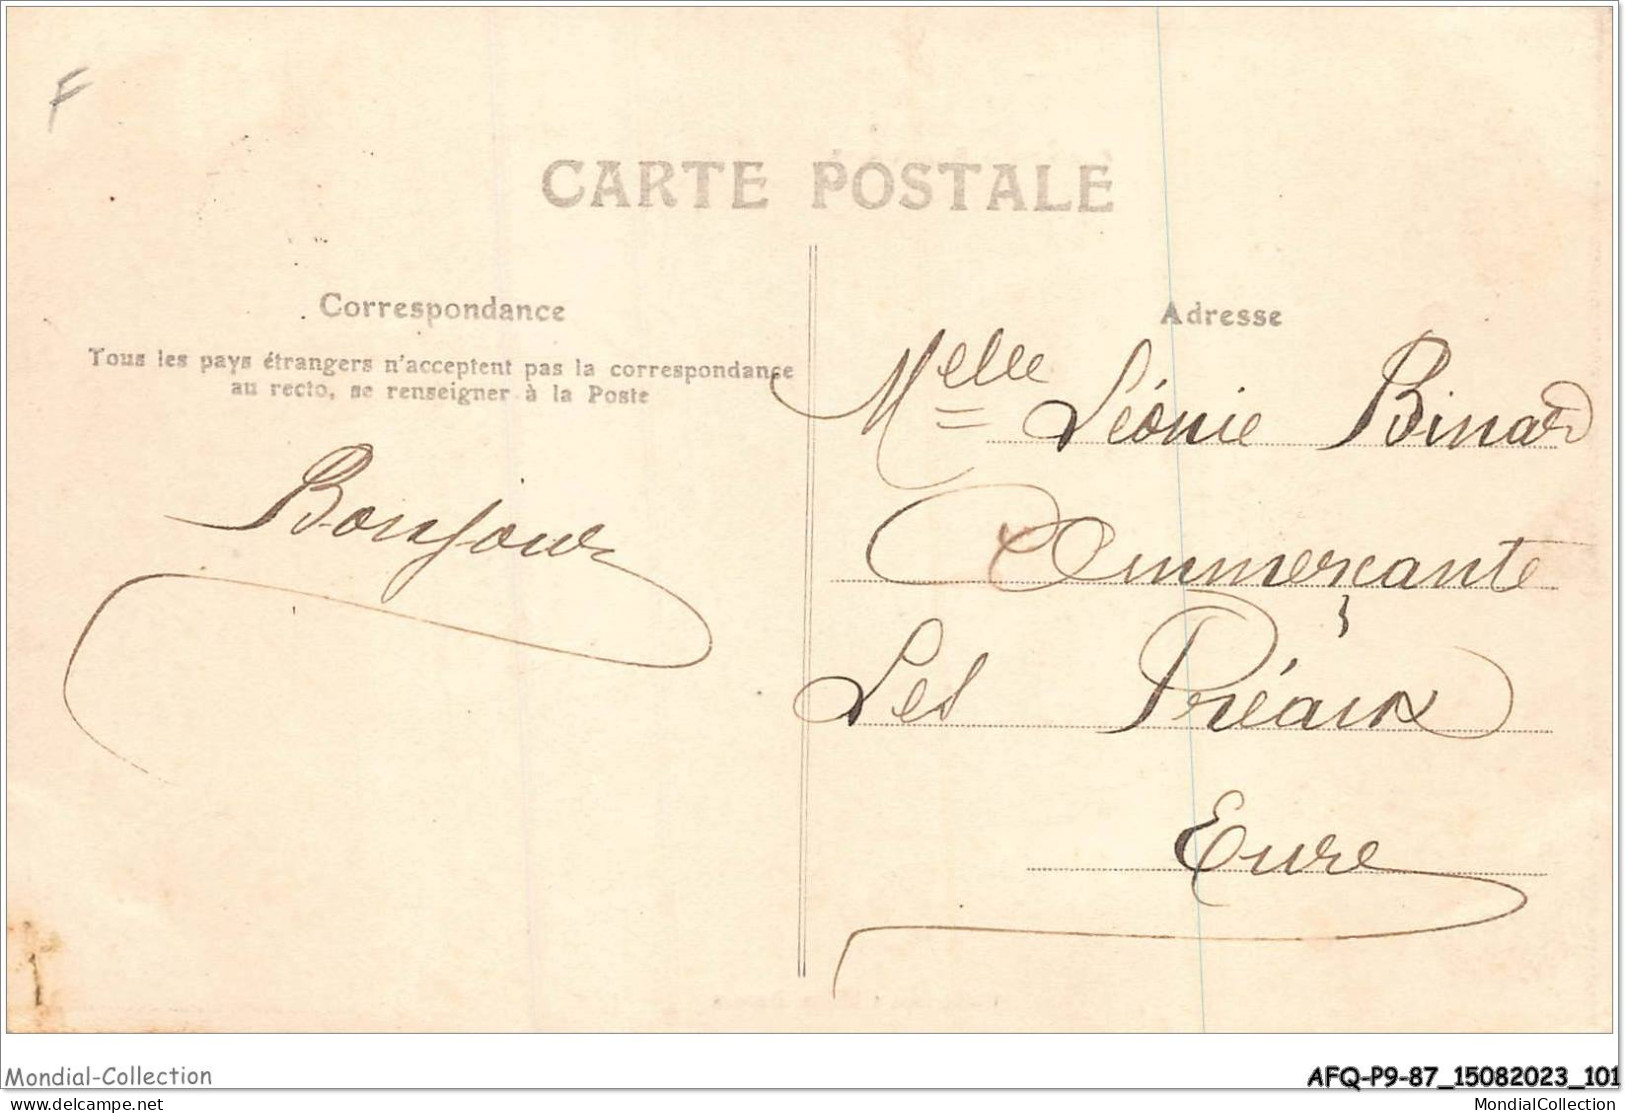 F
CARTE POSTALE
Correspondance
Tous les pays étrangers n'acceptent pas la correspondance
au recto, se renseigner à la Poste
Bonjour
Adresse
Melle Léonie Binard
Commerçante
Les Préaux
Eure
Mondial-Collection
AFQ-P9-87_15082023_101
delcampe.net
MondialCollection